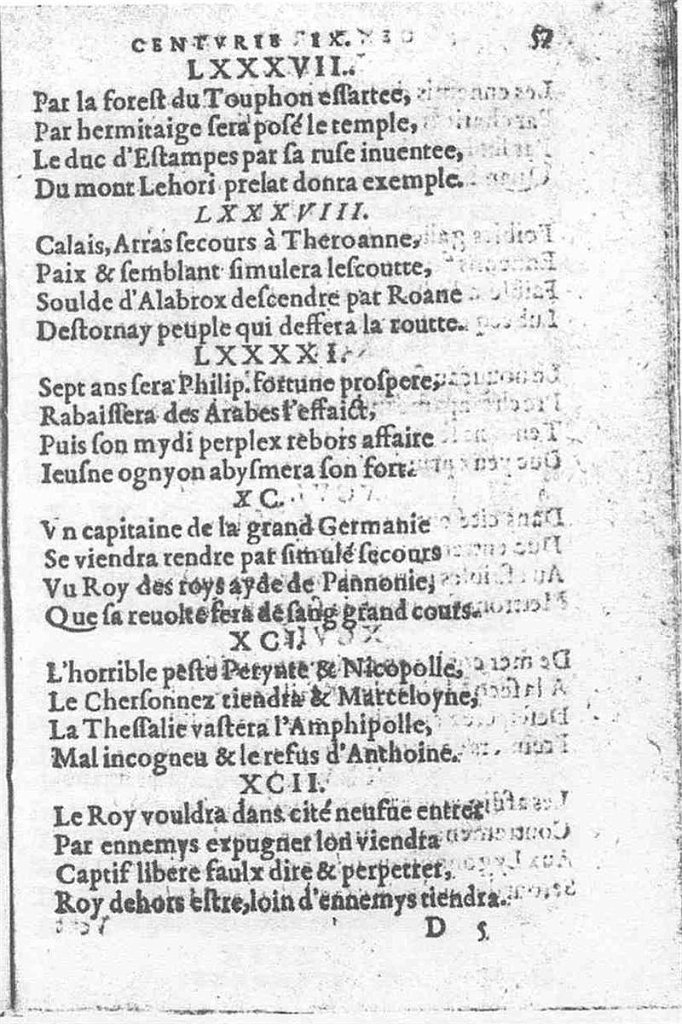 CENTVRIE IX.
57
LXXXVII.
Par la foreſt du Touphon eſſartee,
Par hermitaige ſera poſé le temple,
Le duc d'Eſtampes par ſa ruſe inuentee,
Du mont Lehori prelat donra exemple.
LXXXVIII.
Calais, Arras ſecours à Theroanne,
Paix & ſemblant ſimulera leſcoutte,
Soulde d'Alabrox deſcendre par Roane
Deſtornay peuple qui deffera la routte.
LXXXXI.
Sept ans ſera Philip. fortune proſpere,
Rabaiſſera des Arabes l'effaict,
Puis ſon mydi perplex rebors affaire
Ieuſne ognyon abyſmera ſon fort.
XC.
Vn capitaine de la grand Germanie
Se viendra rendre par ſimulé ſecours
Vu Roy des roys ayde de Pannonie,
Que ſa reuolte ſera de ſang grand cours.
XCI.
L'horrible peſte Perynte & Nicopolle,
Le Cherſonnez tiendra & Marceloyne,
La Theſſalie vaſtera l'Amphipolle,
Mal incogneu & le refus d'Anthoine.
XCII.
Le Roy vouldra dans cité neufue entrer
Par ennemys expugner lon viendra
Captif libere faulx dire & perpetrer,
Roy dehors eſtre, loin d'ennemys tiendra.
D 5